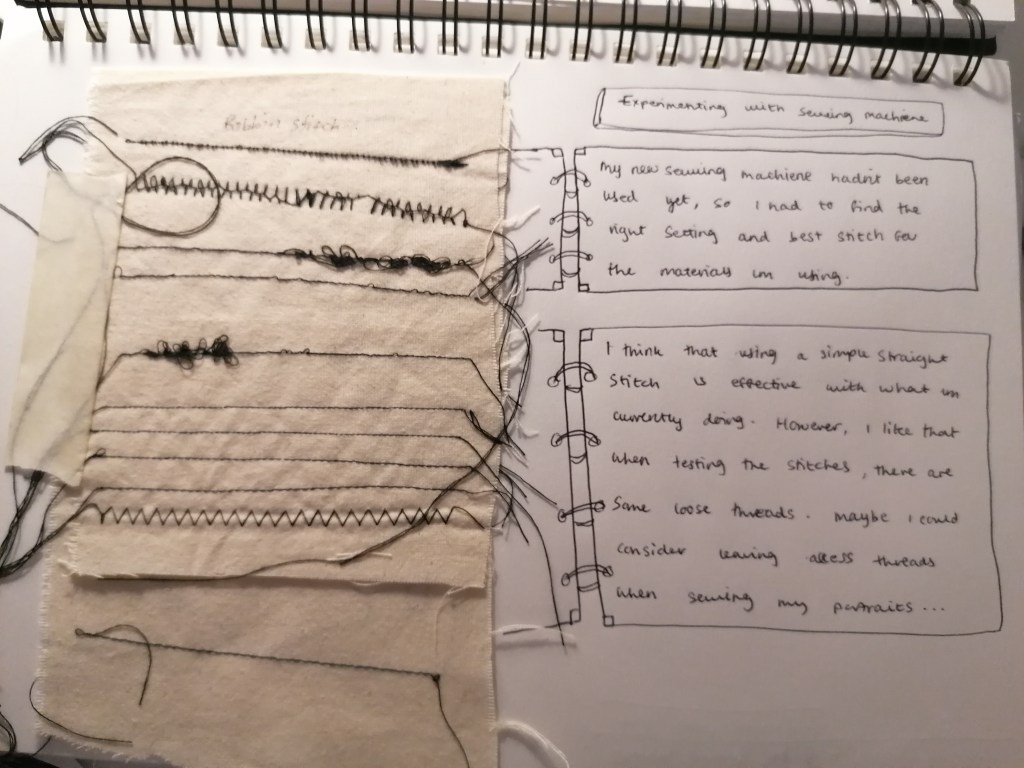 Experimenting with sewing machiene
my new sewing machiene hadn't been
used yet, so I had to find the
right setting and best stitch for
the materials im using.
I think that using a simple straight
stitch is effective with what im
currently doing. However, I like that
when testing the stitches, there are
some loose threads. maybe I could
consider leaving access threads
when sewing my portraits...